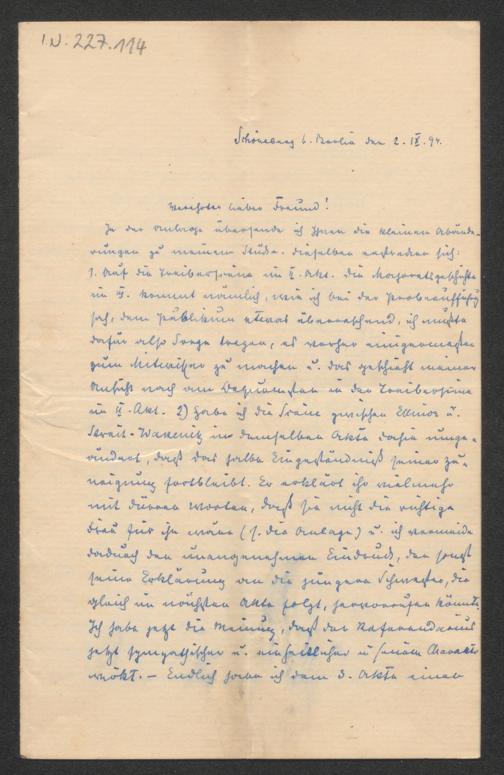 I.N. 227.114
Schöneberg b. Berlin den 2. IX. 94.
Verehrter lieber Freund!
In der Anlage übersende ich Ihnen die kleinen Abände-
rungen zu meinem Stück. Dieselben erstrecken sich:
1. Auf die im II. Akt. Die Majoratsgeschichte
im 4. kommt nämlich, wie ich bei der Probeaufführung
sah, dem Publikum etwas überraschend, ich mußte
dafür also Sorge tragen, es vorher einigermaßen
zum Mitwisser zu machen u. das geschieht meiner
Ansicht nach am bequemsten in der
im II. Akt. 2) habe ich die Scene zwischen Ellinor u.
Streit-Wakenitz im demselben Akte dahin umge-
ändert, daß das halbe Eingeständniß seiner Zu-
neigung fortbleibt. Er erklärt ihr vielmehr
mit dürren Worten, daß sie nicht die richtige
Frau für ihn wäre (s. die Anlage) u. ich vermeide
dadurch den unangenehmen Eindruck, den sonst
seine Erklärung an die jüngere Schwester, die
gleich im nächsten Akte folgt, hervorrufen könnte.
Ich habe jetzt die Meinung, daß der Referendarius
jetzt sympathischer u. einheitlicher in seinem Charakter
wirkt. – Endlich habe ich dem 3. Akte einen